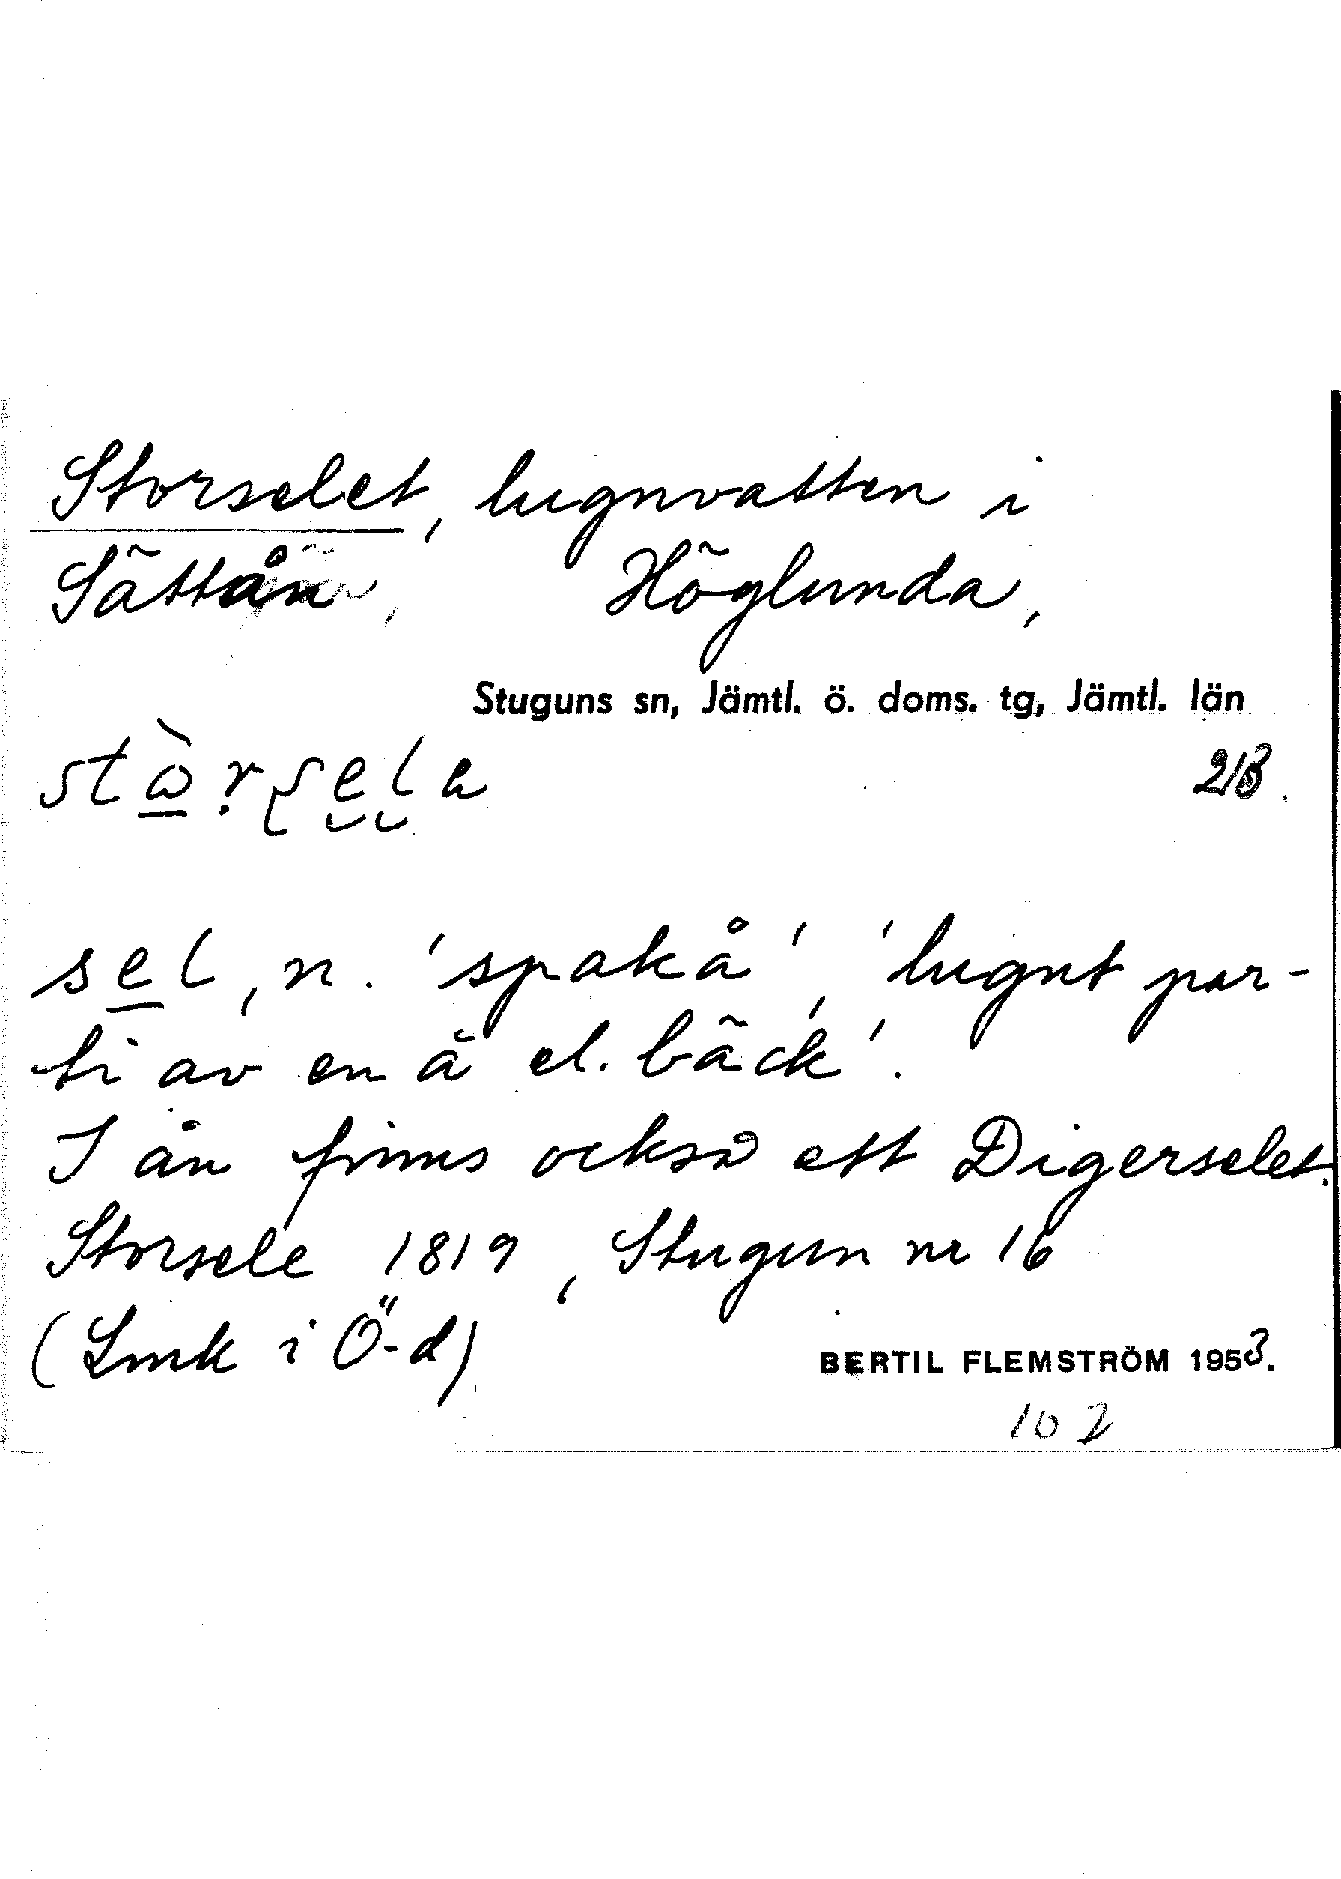 Storselet, lugnvatten i
Sättån, Höglunda,
Stuguns sn, Jämtl. ö. doms. tg, Jämtl. län
213.
sel, n. 'spakå', 'lugnt par-
ti av en å el. bäck'.
I ån finns också ett Digerselet.
Storsele 1819, Stugun nr 16
(Lmk i Ö-d)
BERTIL FLEMSTRÖM 1953.
102